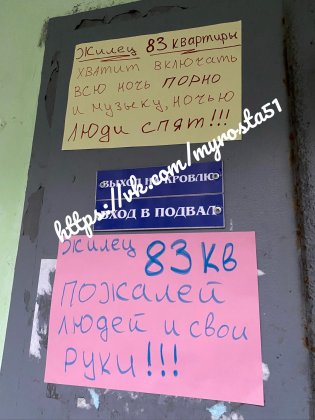 Жилец 83 квартиры
хватит включать
всю ночь порно
и музыку, ночью
люди спят!!!
ВЫХОД НА КРОВЛЮ
ВХОД В ПОДВАЛ
https://vk.com/myrosta51
Жилец
83 кв
пожалей
людей и свои
руки!!!